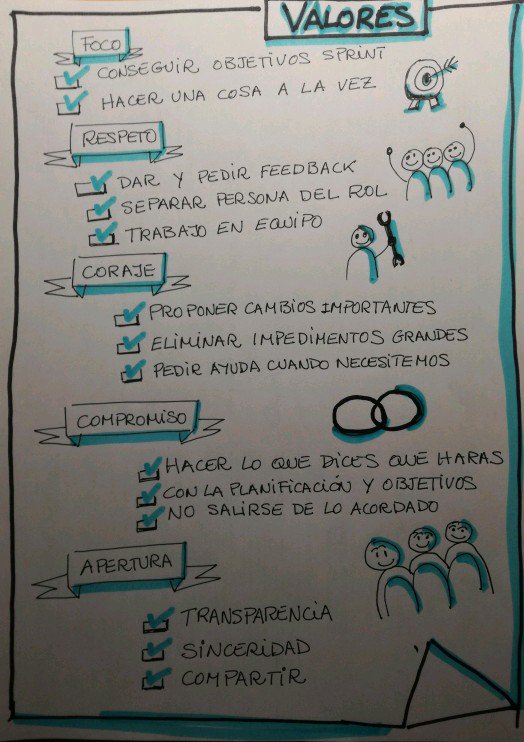 VALORES
FOCO
CONSEGUIR OBJETIVOS SPRINT
HACER UNA COSA A LA VEZ
RESPETO
DAR Y PEDIR FEEDBACK
SEPARAR PERSONA DEL ROL
TRABAJO EN EQUIPO
CORAJE
PROPONER CAMBIOS IMPORTANTES
ELIMINAR IMPEDIMENTOS GRANDES
PEDIR AYUDA CUANDO NECESITEMOS
COMPROMISO
HACER LO QUE DICES QUE HARAS
CON LA PLANIFICACIÓN Y OBJETIVOS
NO SALIRSE DE LO ACORDADO
APERTURA
TRANSPARENCIA
SINCERIDAD
COMPARTIR